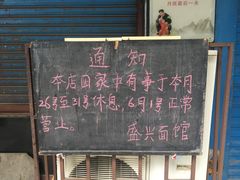 通知
本店因家中有事于本月
26号至31号休息，6月1号正常
营业。 盛兴面馆